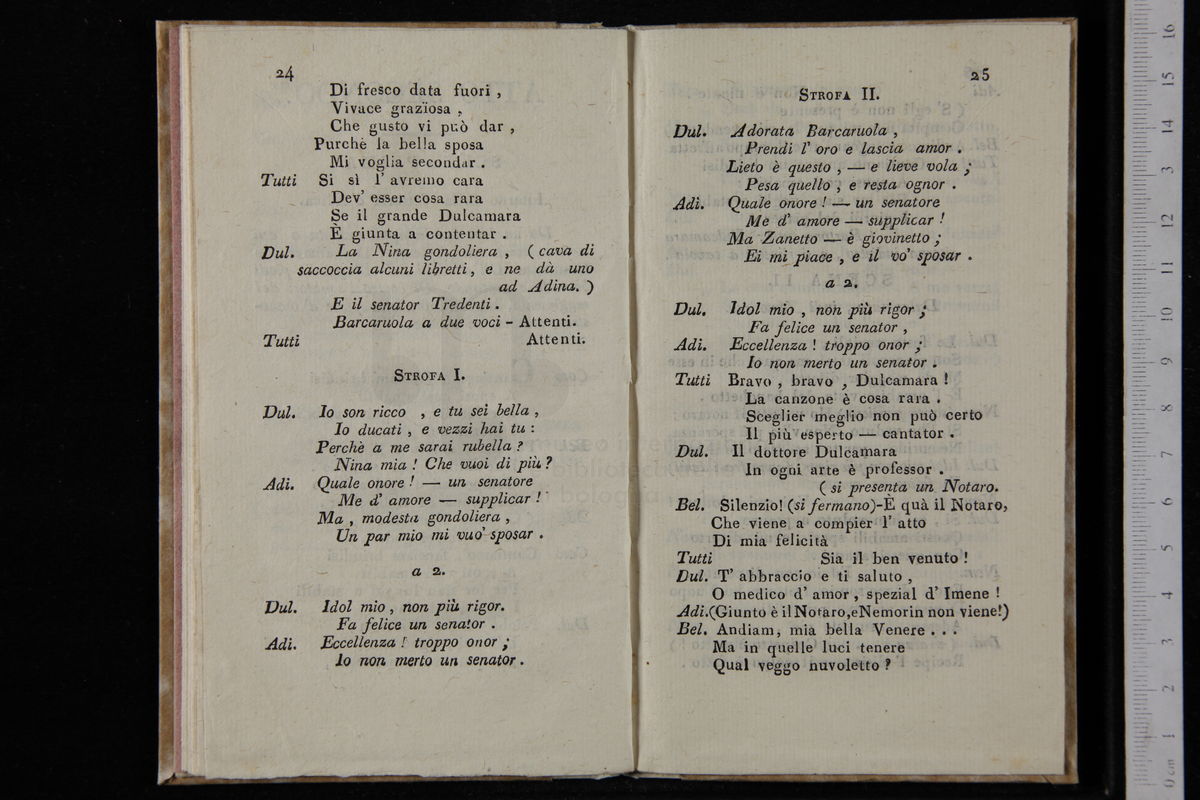 24
Di fresco data fuori ,
Vivace grazïosa ,
Che gusto vi può dar ,
Purchè la bella sposa
Mi voglia secondar .
Tutti Si sì l' avremo cara
Dev' esser cosa rara
Se il grande Dulcamara
È giunta a contentar .
Dul. La Nina gondoliera , ( cava di
saccoccia alcuni libretti, e ne dà uno
ad Adina. )
E il senator Tredenti .
Barcaruola a due voci - Attenti.
Tutti Attenti.
STROFA I.
Dul. Io son ricco , e tu sei bella ,
Io ducati , e vezzi hai tu :
Perchè a me sarai rubella ?
Nina mia ! Che vuoi di più ?
Adi. Quale onore ! — un senatore
Me d' amore — supplicar !
Ma , modesta gondoliera ,
Un par mio mi vuo' sposar .
a 2.
Dul. Idol mio , non più rigor.
Fa felice un senator .
Adi. Eccellenza ! troppo onor ;
Io non merto un senator .
25
STROFA II.
Dul. Adorata Barcaruola ,
Prendi l' oro e lascia amor .
Lieto è questo , — e lieve vola ;
Pesa quello , e resta ognor .
Adi. Quale onore ! — un senatore
Me d' amore — supplicar !
Ma Zanetto — è giovinetto ;
Ei mi piace , e il vo' sposar .
a 2.
Dul. Idol mio , non più rigor ;
Fa felice un senator ,
Adi. Eccellenza ! troppo onor ;
Io non merto un senator .
Tutti Bravo , bravo , Dulcamara !
La canzone è cosa rara .
Sceglier meglio non può certo
Il più esperto — cantator .
Dul. Il dottore Dulcamara
In ogni arte è professor .
( si presenta un Notaro.
Bel. Silenzio! (si fermano)-È quà il Notaro,
Che viene a compier l' atto
Di mia felicità
Tutti Sia il ben venuto !
Dul. T' abbraccio e ti saluto ,
O medico d' amor , spezial d' Imene !
Adi.(Giunto è il Notaro,e Nemorin non viene!)
Bel. Andiam, mia bella Venere . . .
Ma in quelle luci tenere
Qual veggo nuvoletto ?